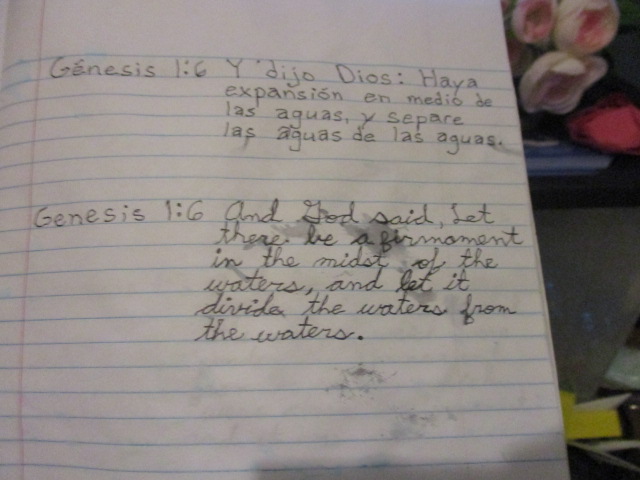 Génesis 1:6 Y dijo Dios: Haya
expansión en medio de
las aguas, y separe
las aguas de las aguas.
Genesis 1:6 And God said, Let
there be a firmament
in the midst of the
waters, and let it
divide the waters from
the waters.